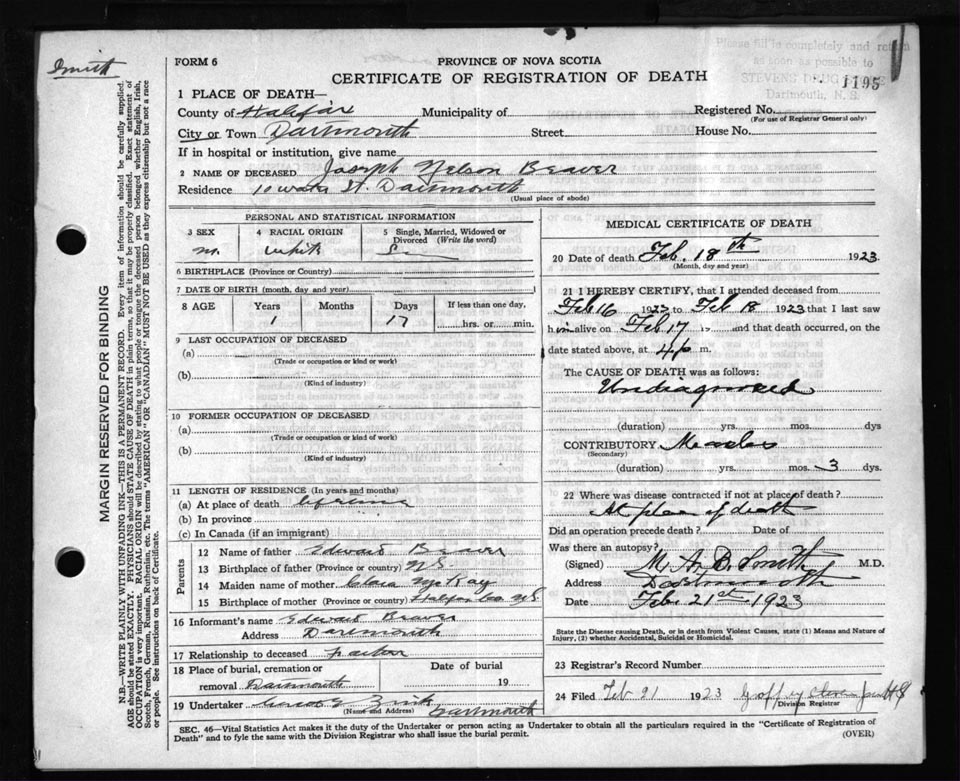 Smith
FORM 6
PROVINCE OF NOVA SCOTIA
CERTIFICATE OF REGISTRATION OF DEATH
Please fill in completely and return
as soon as possible to
STEVENS DRUG
Dartmouth, N. S.
1195
MARGIN RESERVED FOR BINDING
N.B.—WRITE PLAINLY WITH UNFADING INK—THIS IS A PERMANENT RECORD. Every item of information should be carefully supplied.
AGE should be stated EXACTLY. PHYSICIANS should STATE CAUSE OF DEATH in plain terms, so that it may be properly classified. Exact statement of
OCCUPATION is very important. RACIAL ORIGIN will be described by stating to what people or tongue the deceased person belonged whether English, Irish,
Scotch, French, German, Russian, Ruthenian, etc. The terms "AMERICAN" OR "CANADIAN" MUST NOT BE USED as they express citizenship but not a race
or people. See instructions on back of Certificate.
1 PLACE OF DEATH—
County of Halifax Municipality of Registered No.
(For use of Registrar General only)
City or Town Dartmouth Street House No.
If in hospital or institution, give name
2 NAME OF DECEASED Joseph Nelson Beaver
Residence 10 Water St. Dartmouth
(Usual place of abode)
PERSONAL AND STATISTICAL INFORMATION
3 SEX
m.
4 RACIAL ORIGIN
white
5 Single, Married, Widowed or
Divorced (Write the word)
S
6 BIRTHPLACE (Province or Country)
7 DATE OF BIRTH (month, day and year)
8 AGE Years Months Days If less than one day,
1 17 hrs. or min.
9 LAST OCCUPATION OF DECEASED
(a)
(Trade or occupation or kind or work)
(b)
(Kind of industry)
10 FORMER OCCUPATION OF DECEASED
(a)
(Trade or occupation or kind of work)
(b)
(Kind of industry)
11 LENGTH OF RESIDENCE (In years and months)
(a) At place of death lifetime
(b) In province
(c) In Canada (if an immigrant)
Parents
12 Name of father Edward Beaver
13 Birthplace of father (Province or country) N.S.
14 Maiden name of mother Clara McKay
15 Birthplace of mother (Province or country) Halifax Co. N.S.
16 Informant's name Edward Beaver
Address Dartmouth
17 Relationship to deceased father
18 Place of burial, cremation or
removal Dartmouth
Date of burial
19
19 Undertaker Zink
(Name and Address) Dartmouth
MEDICAL CERTIFICATE OF DEATH
20 Date of death Feb. 18th 1923
(Month, day and year)
21 I HEREBY CERTIFY, that I attended deceased from
Feb 16 1923 to Feb 18 1923 that I last saw
him alive on Feb 17 19 and that death occurred, on the
date stated above, at 4 p m.
The CAUSE OF DEATH was as follows:
Undiagnosed
(duration) yrs. mos. dys
CONTRIBUTORY Measles
(Secondary)
(duration) yrs. mos. 3 dys.
22 Where was disease contracted if not at place of death?
At place of death
Did an operation precede death? Date of
Was there an autopsy?
(Signed) M. A. B. Smith M.D.
Address Dartmouth
Date Feb. 21st 1923
State the Disease causing Death, or in death from Violent Causes, state (1) Means and Nature of
Injury, (2) whether Accidental, Suicidal or Homicidal.
23 Registrar's Record Number
24 Filed Feb 21 1923
Division Registrar
SEC. 46—Vital Statistics Act makes it the duty of the Undertaker or person acting as Undertaker to obtain all the particulars required in the "Certificate of Registration of
Death" and to fyle the same with the Division Registrar who shall issue the burial permit.
(OVER)